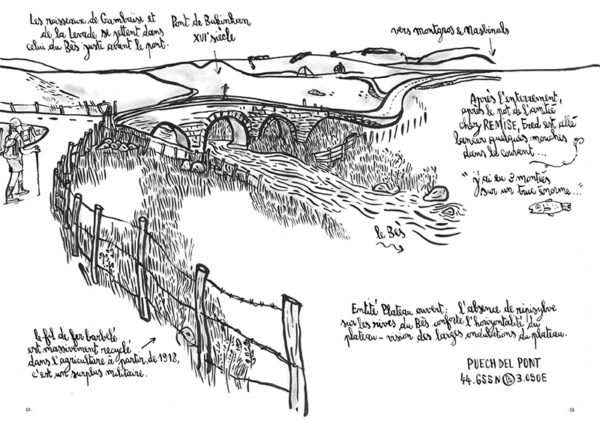 Les ruisseaux de Gambaïse et
de la Levade se jettent dans
celui du Bès juste avant le pont.
Pont de
XVIIe siècle
vers montgros & Nasbinals
Après l'enterrement,
après le pot de l'amitié
chez REMISE, Fred est allé
lancer quelques mouches
dans le courant...
"j'ai eu 3 montées
sur un truc énorme..."
le Bès
le fil de fer barbelé
est massivement recyclé
dans l'agriculture à partir de 1918,
c'est un surplus militaire.
Entité Plateau ouvert : l'absence de ripisylve
sur les rives du Bès conforte l'horizontalité du
plateau - vision des larges ondulations du plateau.
PUECH DEL PONT
44.655N 3.090E
52
53